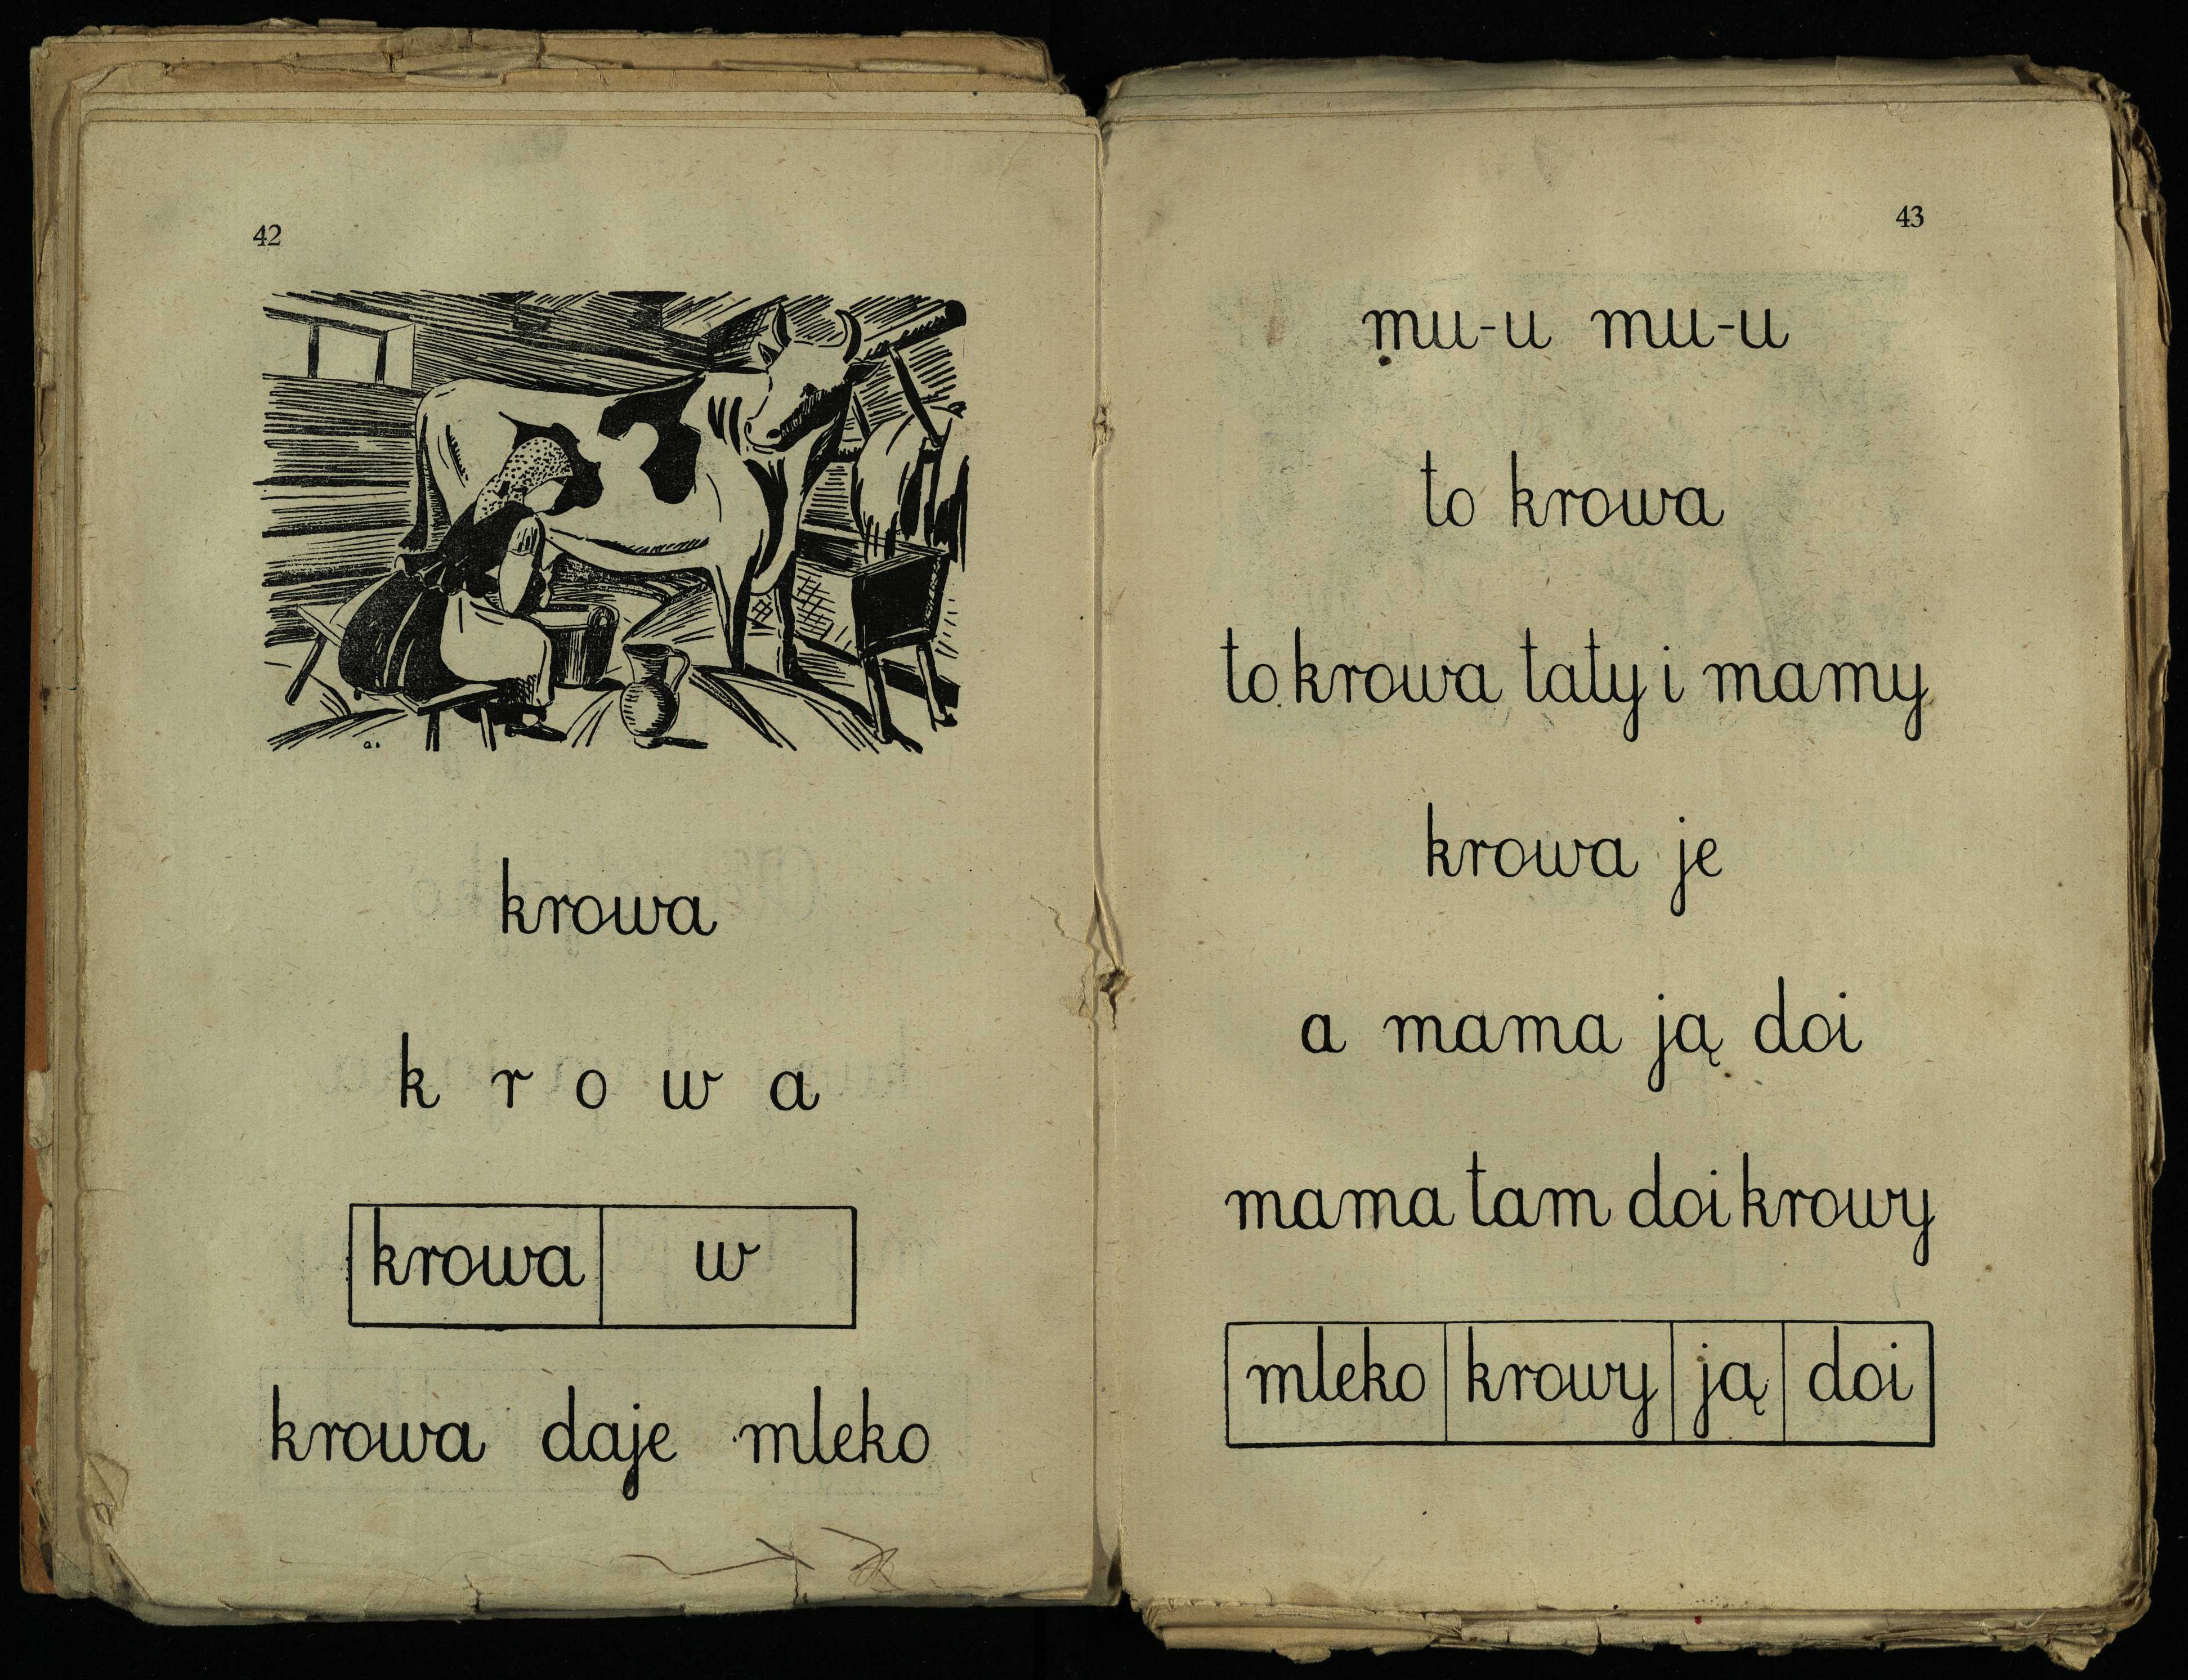 42
krowa
k r o w a
krowa w
krowa daje mleko
43
mu-u mu-u
to krowa
to krowa taty i mamy
krowa je
a mama ją doi
mama tam doi krowy
mleko krowy ją doi